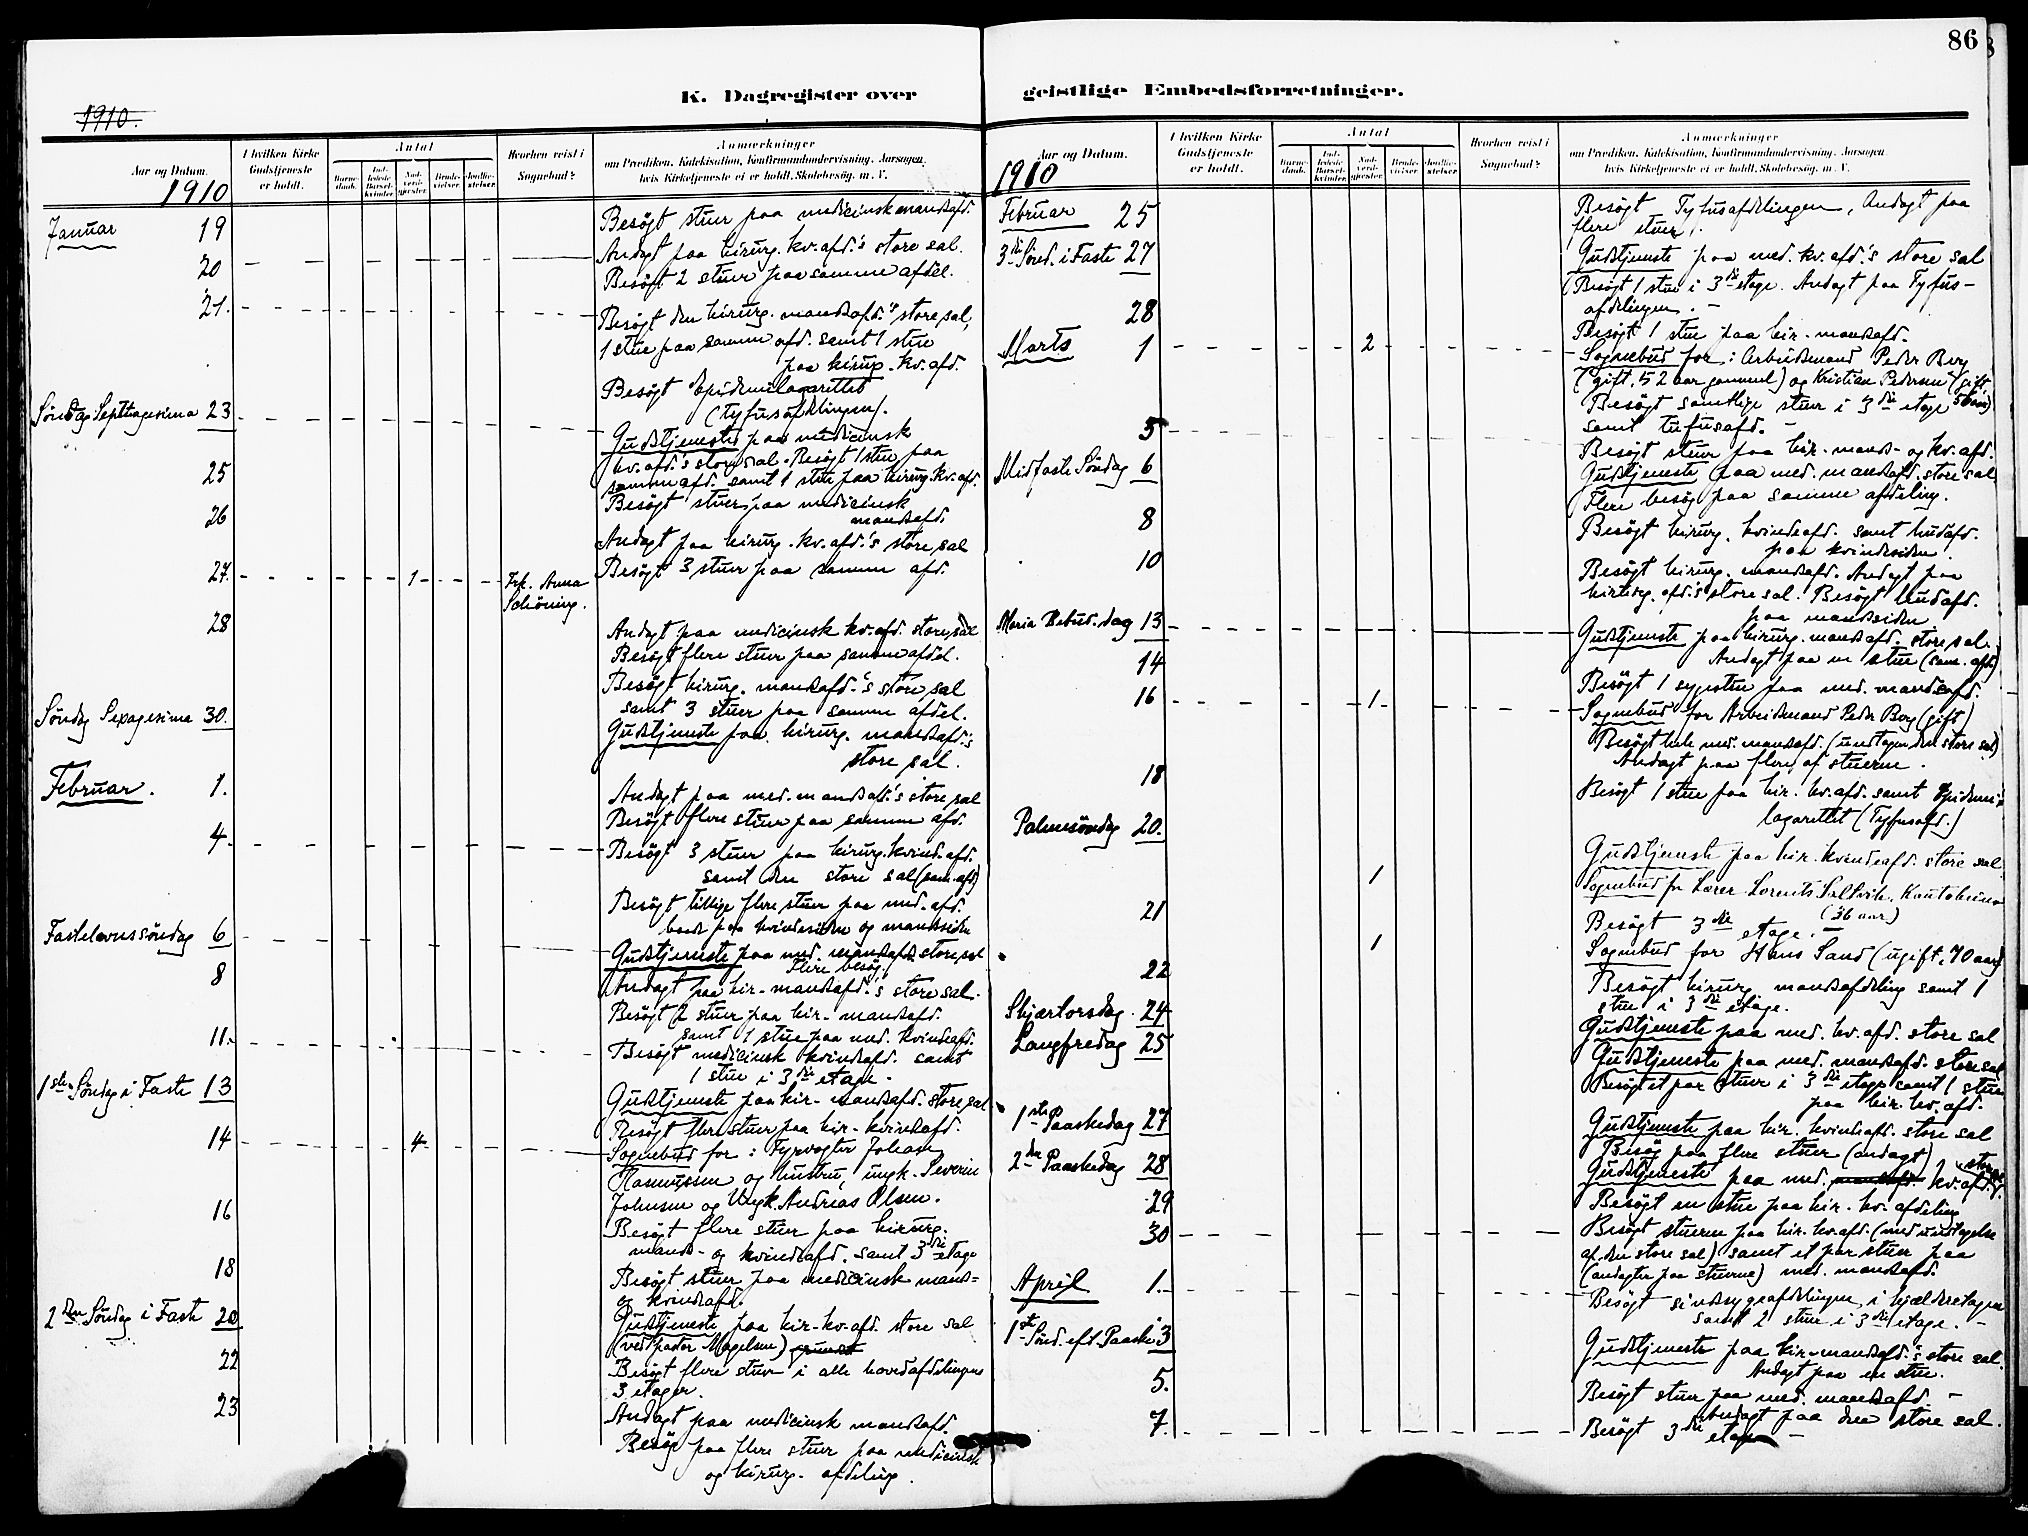 K. Dagregister over
1910.
Aar og Datum.
I hvilken Kirke
Gudstjeneste
er holdt.
Antal
Barne-
daab.
Ind-
ledede
Barsel-
kvinder.
Nad-
verd-
gjester.
Brude-
vielser.
Jordfæ-
stelser.
Hvorhen reist i
Sognebud?
Anmærkninger
om Prædiken, Katekisation, Konfirmandundervisning, Aarsagen,
hvis Kirketjeneste ei er holdt, Skolebesøg, m. V.
1910
Januar 19
Besögt stuer paa medicinsk mandsafd.
Andagt paa kirurg. kv.afd.'s store sal.
20
Besögt 2 stuer paa samme afdel.
21.
Besögt den kirurg. mandsafd.'s store sal,
1 stue paa samme afd. samt 1 stue
paa kirurg. kv.afd.
Besögt Epidemilazarettet
(tyfusafdelingen).
Söndag Septuagesima 23
Gudstjeneste paa medicinsk
kv.afd.'s store sal. Besögt 1 stue paa
samme afd. samt 1 stue paa kirurg. kv.afd.
25
Besögt stuer paa medicinsk
mandsafd.
26
Andagt paa kirurg. kv.afd.'s store sal
27. 1 Frk. Anna
Schöning.
Besögt 3 stuer paa samme afd.
28
Andagt paa medicinsk kv.afd. store sal
Besögt flere stuer paa samme afdel.
Besögt kirurg. mandsafd.'s store sal
samt 3 stuer paa samme afdel.
Söndag Sexagesima 30.
Gudstjeneste paa kirurg. mandsafd.'s
store sal.
Februar. 1.
Andagt paa med. mandsafd.'s store sal
Besögt flere stuer paa samme afd.
4.
Besögt 3 stuer paa kirurg. kvind.afd.
samt den store sal (sam. afd)
Besögt tillige flere stuer paa med. afd.
baade paa kvindesiden og mandssiden
Fastelavnssöndag 6
Gudstjeneste paa med. mandsafd. store sal
Flere besög.
8
Andagt paa kir. mandsafd.'s store sal.
Besögt 2 stuer paa kir. mandsafd.
samt 1 stue paa med. kvindeafd.
11.
Besögt medicinsk kvindeafd. samt
1 stue i 3die etage.
1ste Söndag i Faste 13
Gudstjeneste paa kir. mandsafd. store sal
Besögt flere stuer paa kir. kvindeafd.
14 4
Sognebud for: Fyrvogter Johan
Rasmussen og hustru, ungk. Severin
Johnsen og Ungk. Andreas Olsen.
16
Besögt flere stuer paa kirurg.
mands- og kvindeafd. samt 3die etage
18
Besögt stuer paa medicinsk mands-
og kvindeafd.
2den Söndag i Faste 20
Gudstjeneste paa kir. kv.afd. store sal
(ved pastor Magelsen)
22
Besögt flere stuer i alle hovedafdelingens
3 etager.
23
Andagt paa medicinsk mandsafd.
Besög paa flere stuer paa medicinsk
og kirurg. afdeling.
86
geistlige Embedsforretninger.
Aar og Datum.
I hvilken Kirke
Gudstjeneste
er holdt.
Antal
Barne-
daab.
Ind-
ledede
Barsel-
kvinder.
Nad-
verd-
gjester.
Brude-
vielser.
Jordfæ-
stelser.
Hvorhen reist i
Sognebud?
Anmærkninger
om Prædiken, Katekisation, Konfirmandundervisning, Aarsagen,
hvis Kirketjeneste ei er holdt, Skolebesøg, m. V.
1910
Februar 25
Besögt Tyfusafdelingen, Andagt paa
flere stuer.
3die Sönd. i Faste 27
Gudstjeneste paa med. kv.afd.'s store sal
Besögt 1 stue i 3die etage. Andagt paa Tyfus-
afdelingen. -
28
Besögt 1 stue paa kir. mandsafd.
Marts 1 2
Sognebud for: Arbeidsmand Peder Berg
(gift, 52 aar gammel) og Kristian Pedersen (gift,
Besögt samtlige stuer i 3die etage
samt tyfusafd. -
5
Besögt stuer paa kir. mands- og kv.afd.
Midfaste Söndag 6
Gudstjeneste paa med. mandsafd. store sal
Flere besög paa samme afdeling.
8
Besögt kirurg. kvindeafd. samt hudafd.
paa kvindesiden.
10
Besögt kirurg. mandsafd. Andagt paa
kirurg. afd.'s store sal. Besögt hudafd.
paa mandssiden
Maria Bebud. dag 13
Gudstjeneste paa kirurg. mandsafd. store sal.
Andagt paa en stue (sam. afd.)
14
Besögt 1 sygestue paa med. mandsafd.
16 1
Sognebud for Arbeidsmand Peder Berg (gift)
Besögt hele med. mandsafd. (undtagen den store sal)
Andagt paa flere af stuerne.
18
Besögt 1 stue paa kir. kv.afd. samt Epidemi-
lazarettet (Tyfusafd.)
Palmesöndag 20.
Gudstjeneste paa kir. kvindeafd. store sal
1
Sognebud for Lærer Lorents Saltvik, Kautokeino
(36 aar)
21
Besögt 3die etage. -
1
Sognebud for Hans Sand (ugift, 70 aar)
22
Besögt kirurg. mandsafdeling samt 1
stue i 3die etage.
Skjærtorsdag 24
Gudstjeneste paa med. kv.afd. store sal
Langfredag 25
Gudstjeneste paa med. mandsafd. store sal
Besögt et par stuer i 3die etage samt 1 stue
paa kir. kv. afd.
1ste Paaskedag 27
Gudstjeneste paa kir. kvindeafd. store sal
Besög paa flere stuer (andagt)
2den Paaskedag 28
Gudstjeneste paa med. mandsafd. kv.afd.
29
Besögt en stue paa kir. kv. afdeling
30
Besögt stuerne paa kir. kv.afd. (med undtagelse
af den store sal) samt et par stuer paa
(andagter paa stuerne) med. mandsafd.
April 1.
Besögt sindssygeafdelingen i kjælderetagen
samt 2 stuer i 3die etage. -
1ste Sönd. eft. Paaske 3
Gudstjeneste paa kir. mandsafd.'s store sal.
Andagt paa en stue.
5.
Besögt stuer paa med. mandsafd. -
Andagt paa den store sal.
7.
Besögt 3die etage -